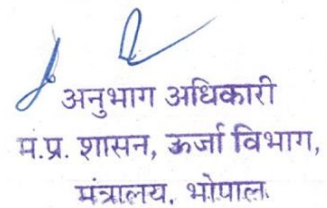 अनुभाग अधिकारी
म.प्र. शासन, ऊर्जा विभाग,
मंत्रालय, भोपाल.